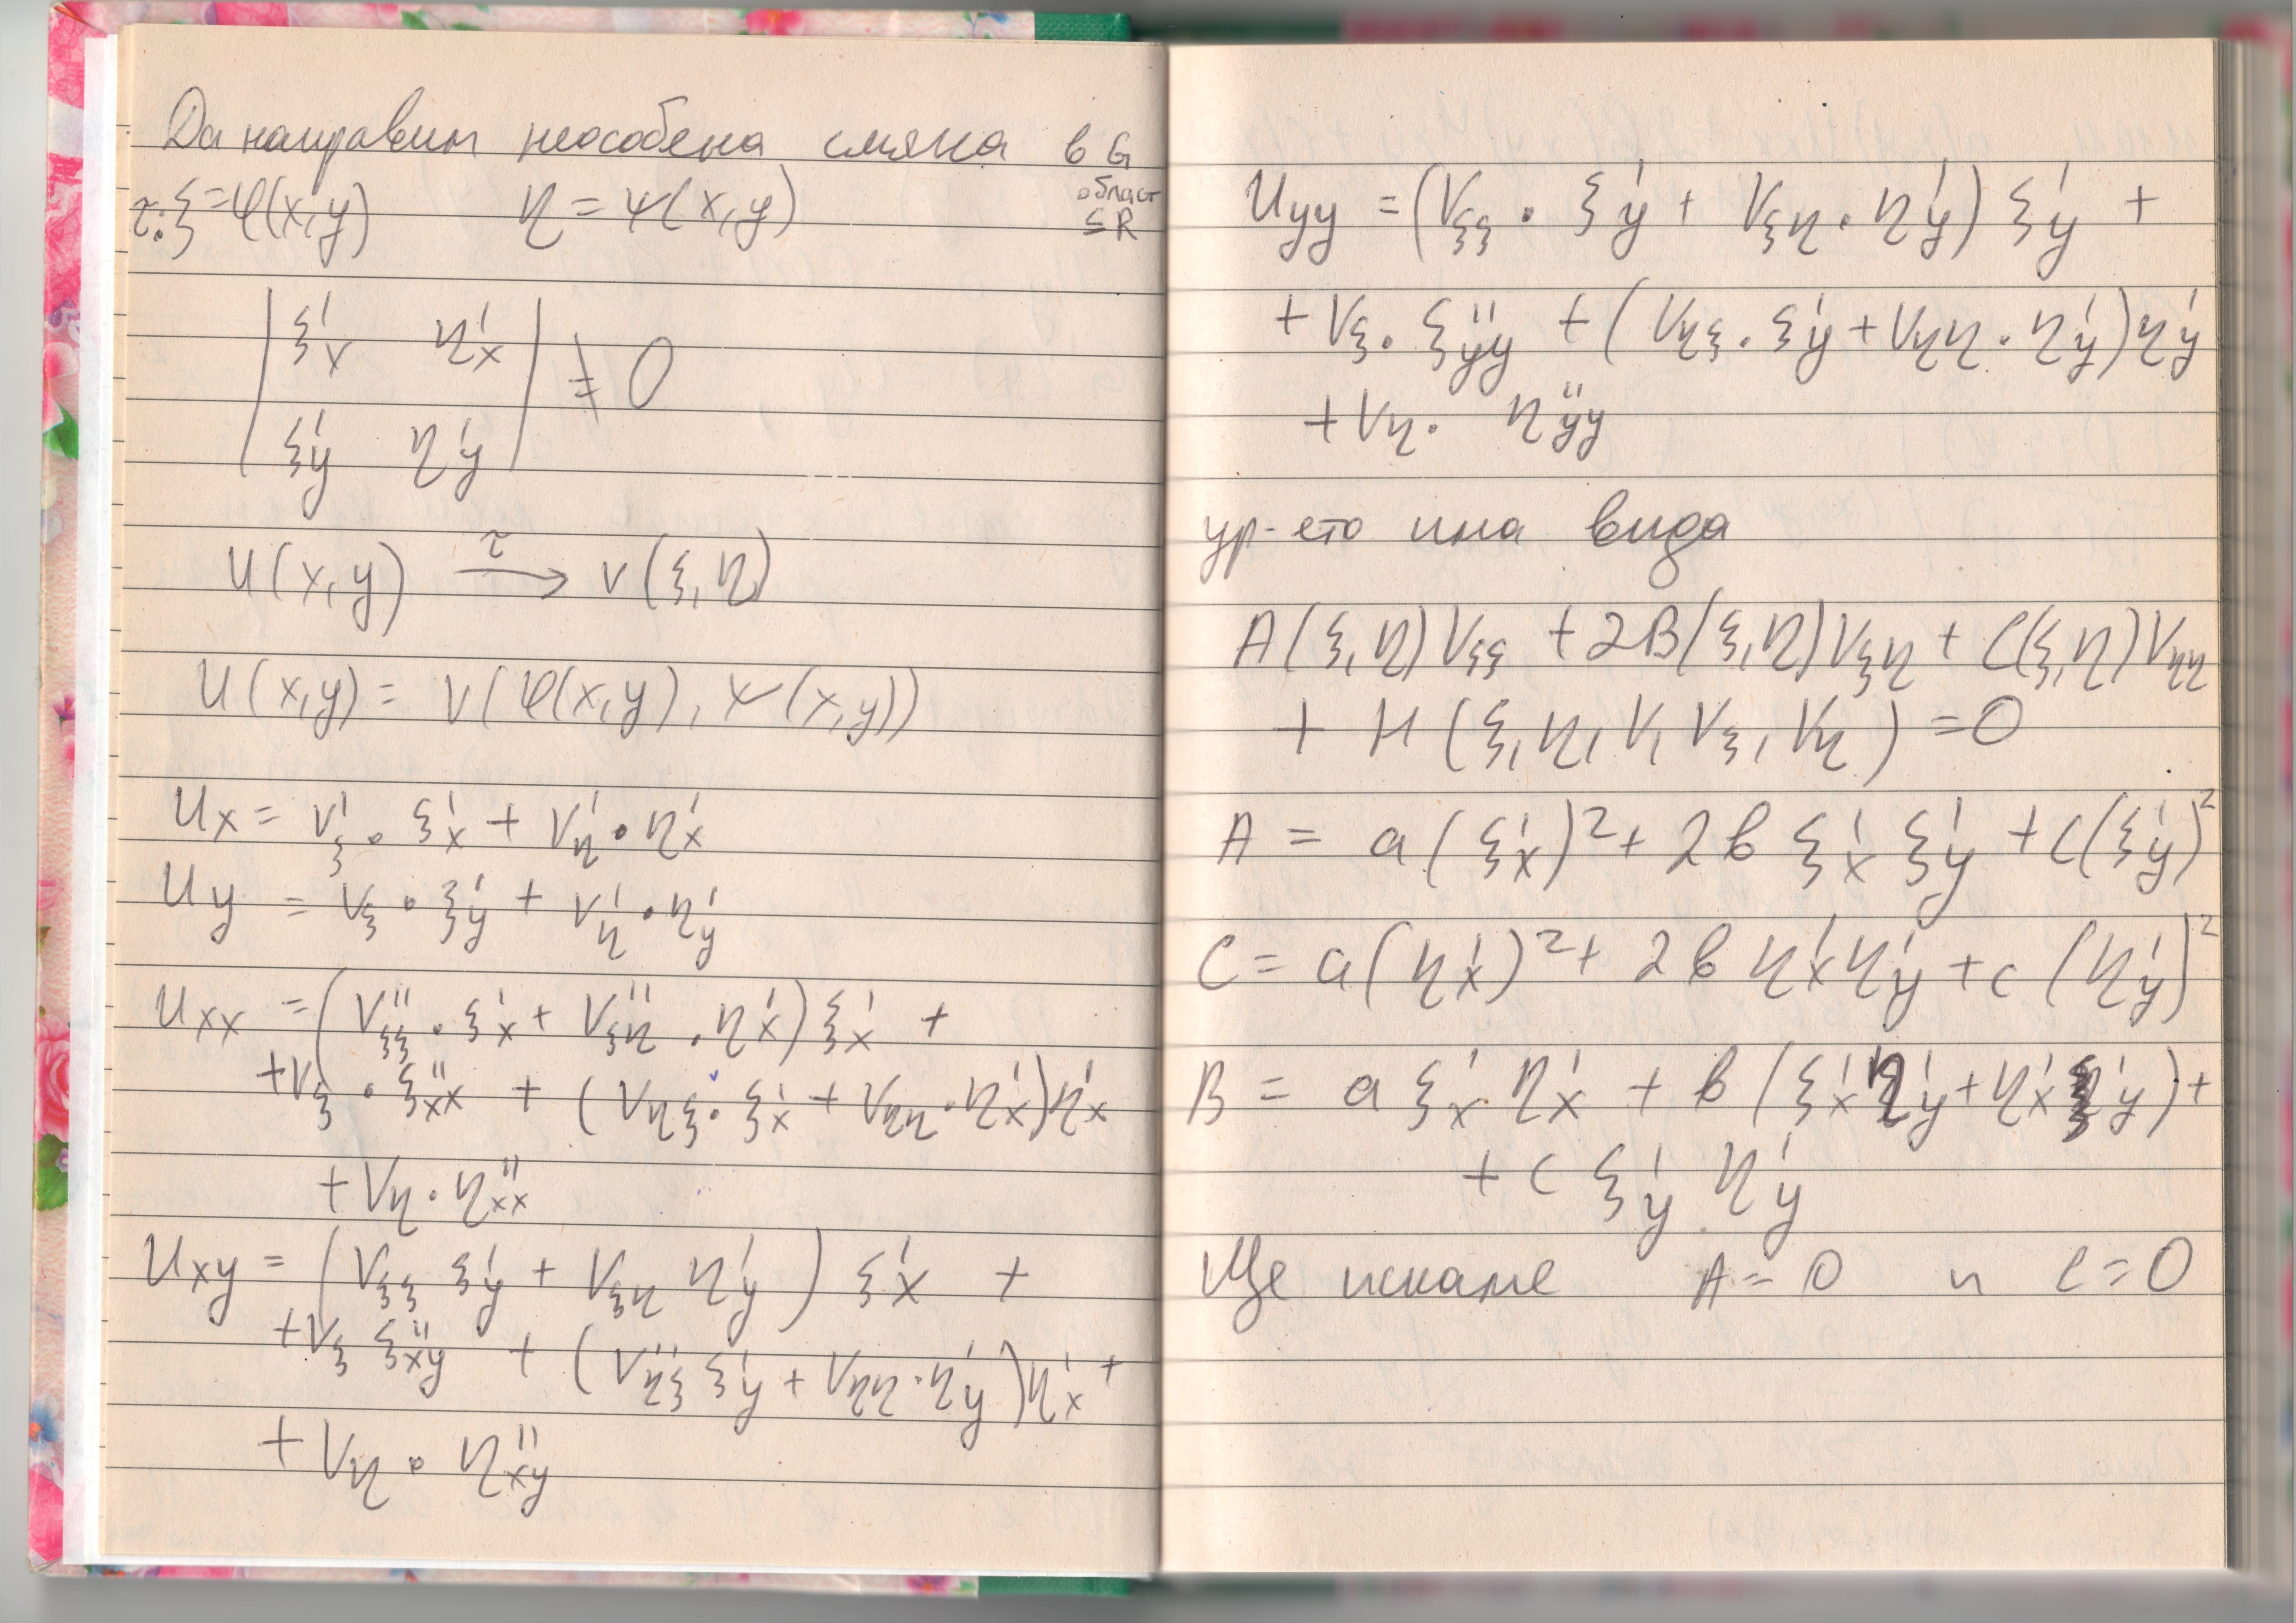 Да направим неособена смяна в G
област
⊆ R
τ: ξ = φ(x,y) η = ψ(x,y)
| ξ'x η'x |
≠ 0
| ξ'y η'y |
u(x,y) →τ v(ξ,η)
u(x,y) = v(φ(x,y), ψ(x,y))
ux = v'ξ . ξ'x + v'η . η'x
uy = vξ . ξ'y + v'η . η'y
uxx = (v''ξξ . ξ'x + v''ξη . η'x) ξ'x +
+ vξ . ξ''xx + (vηξ . ξ'x + vηη . η'x) η'x
+ vη . η''xx
uxy = (vξξ ξ'y + vξη η'y) ξ'x +
+ vξ ξ''xy + (v''ηξ ξ'y + vηη . η'y) η'x +
+ vη . η''xy
uyy = (vξξ . ξ'y + vξη . η'y) ξ'y +
+ vξ . ξ''yy + (vηξ . ξ'y + vηη . η'y) η'y
+ vη . η''yy
ур-ето има вида
A(ξ,η)vξξ + 2B(ξ,η)vξη + C(ξ,η)vηη
+ H(ξ,η,v,vξ,vη) = 0
A = a(ξ'x)² + 2b ξ'x ξ'y + c(ξ'y)²
C = a(η'x)² + 2b η'x η'y + c(η'y)²
B = a ξ'x η'x + b(ξ'x η'y + η'x ξ'y) +
+ c ξ'y η'y
Ще искаме A = 0 и C = 0